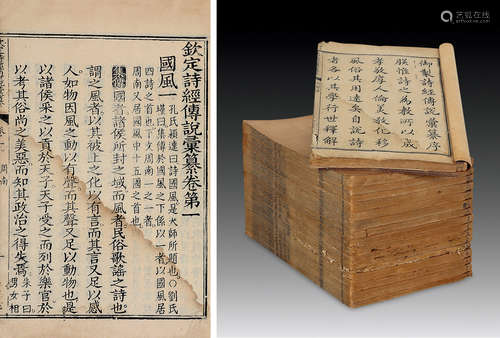 欽定詩經傳說彙纂卷第一
國風一 孔氏穎達曰詩國風是大師所題也○劉氏
瑾曰集傳於國風之下係以一者以國風居
四詩之首也下文周南一之一者
周南又居國風中十五國之首也
集傳 國者諸侯所封之域而風者民俗歌謠之詩也
謂之風者以其被上之化以有言而其言又足以感
人如物因風之動以有聲而其聲又足以動物也是
以諸侯采之以貢於天子天子受之而列於樂官於
以考其俗尚之美惡而知其政治之得失焉 朱子曰
男女相
周南
御製詩經傳說彙纂序
朕惟詩之為教所以成
孝敬厚人倫美教化移
風俗其用遠矣自說詩
者各以其學行世釋解